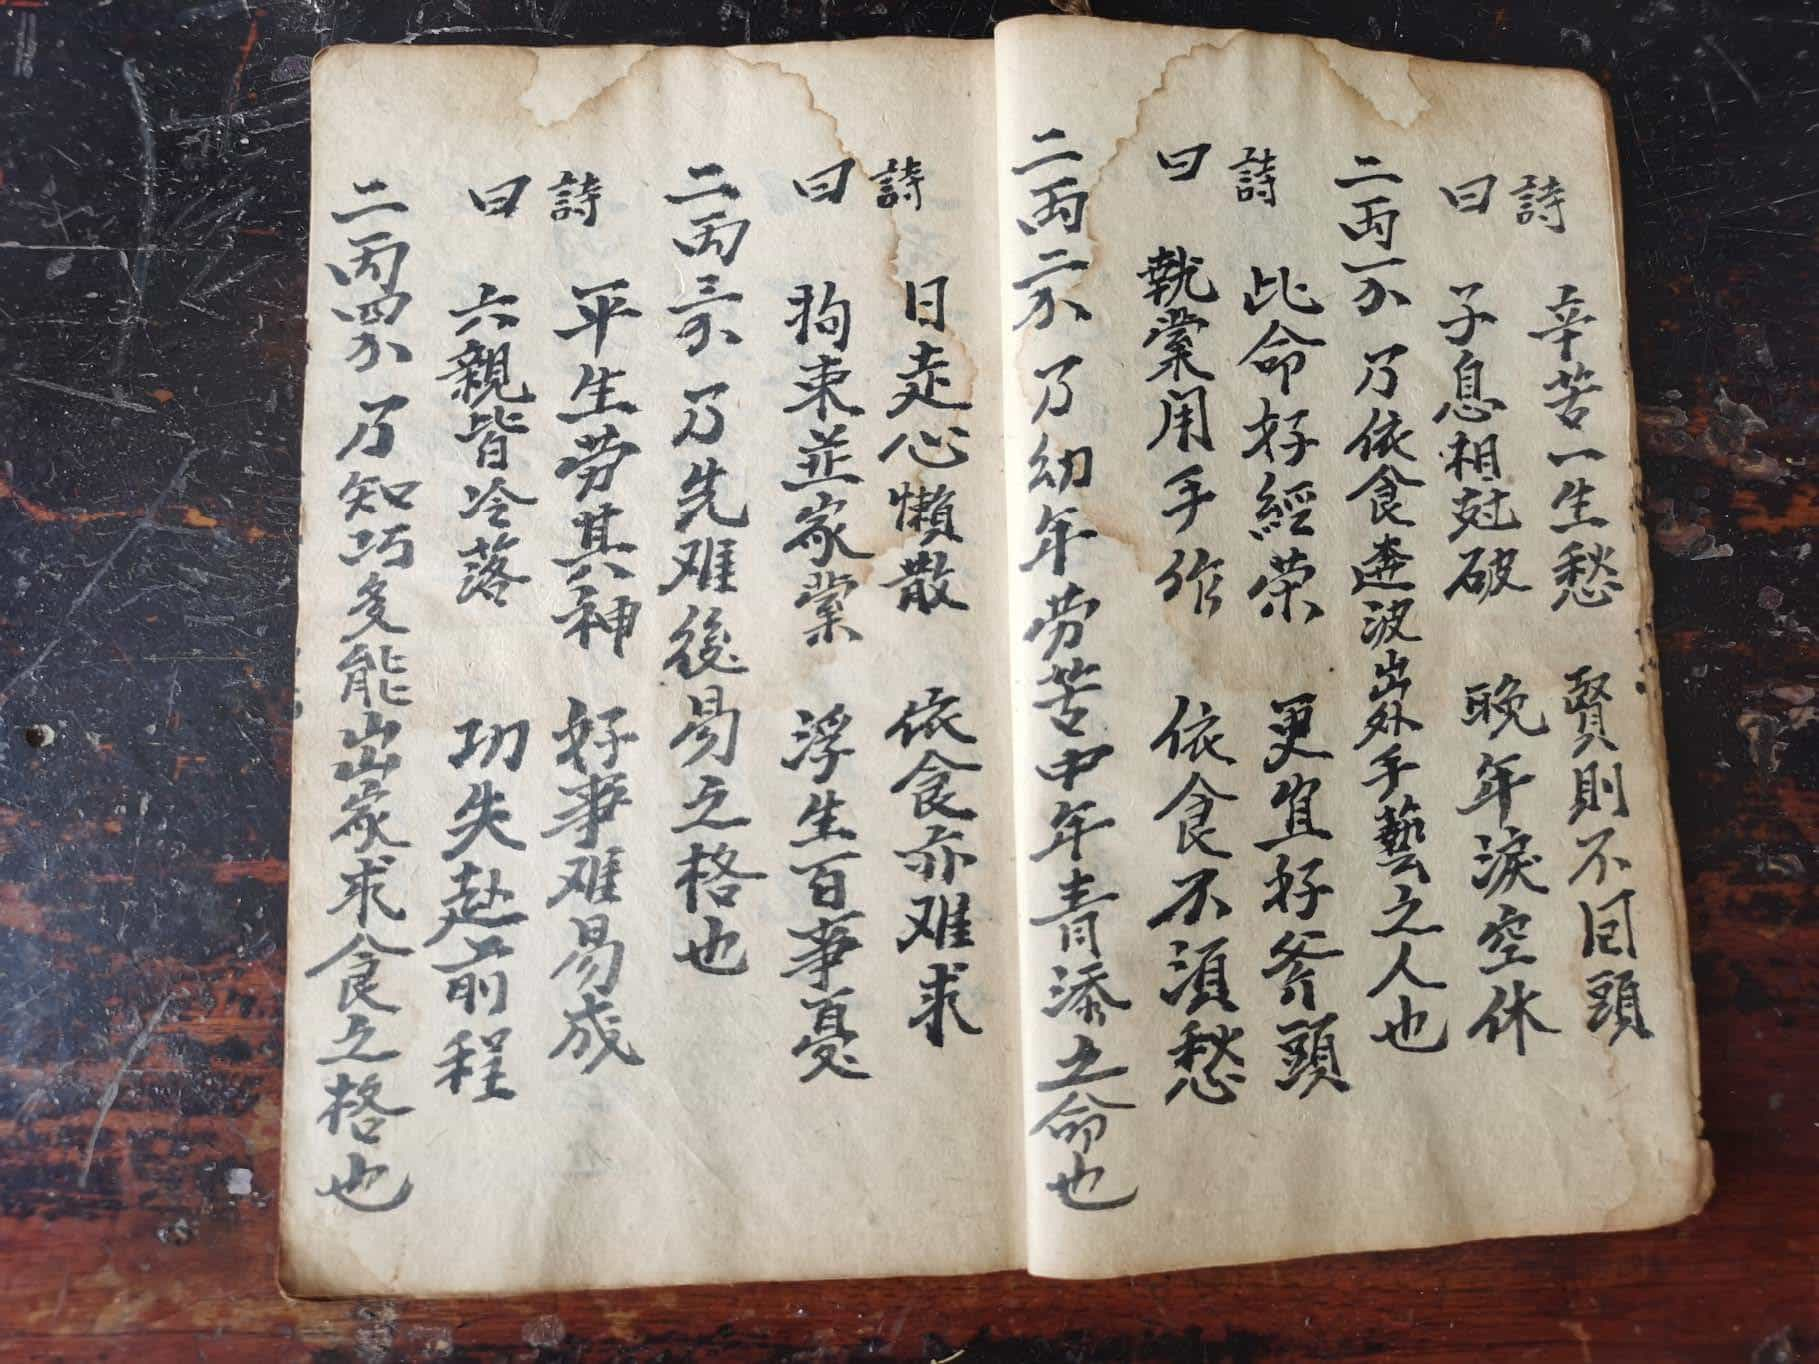 詩曰 辛苦一生愁 賢則不回頭
子息相尅破 晚年淚空休
二両一分 乃依食奔波出外手藝之人也
詩曰 此命好經荣 更宜好斧頭
執業用手作 依食不須愁
二両二分 乃幼年劳苦中年青添之命也
詩曰 日走心懶散 依食亦难求
拘束並家業 浮生百事憂
二両三分 乃先难後易之格也
詩曰 平生劳其神 好事难易成
六親皆冷落 功失赴前程
二両四分 乃知巧多能出家求食之格也